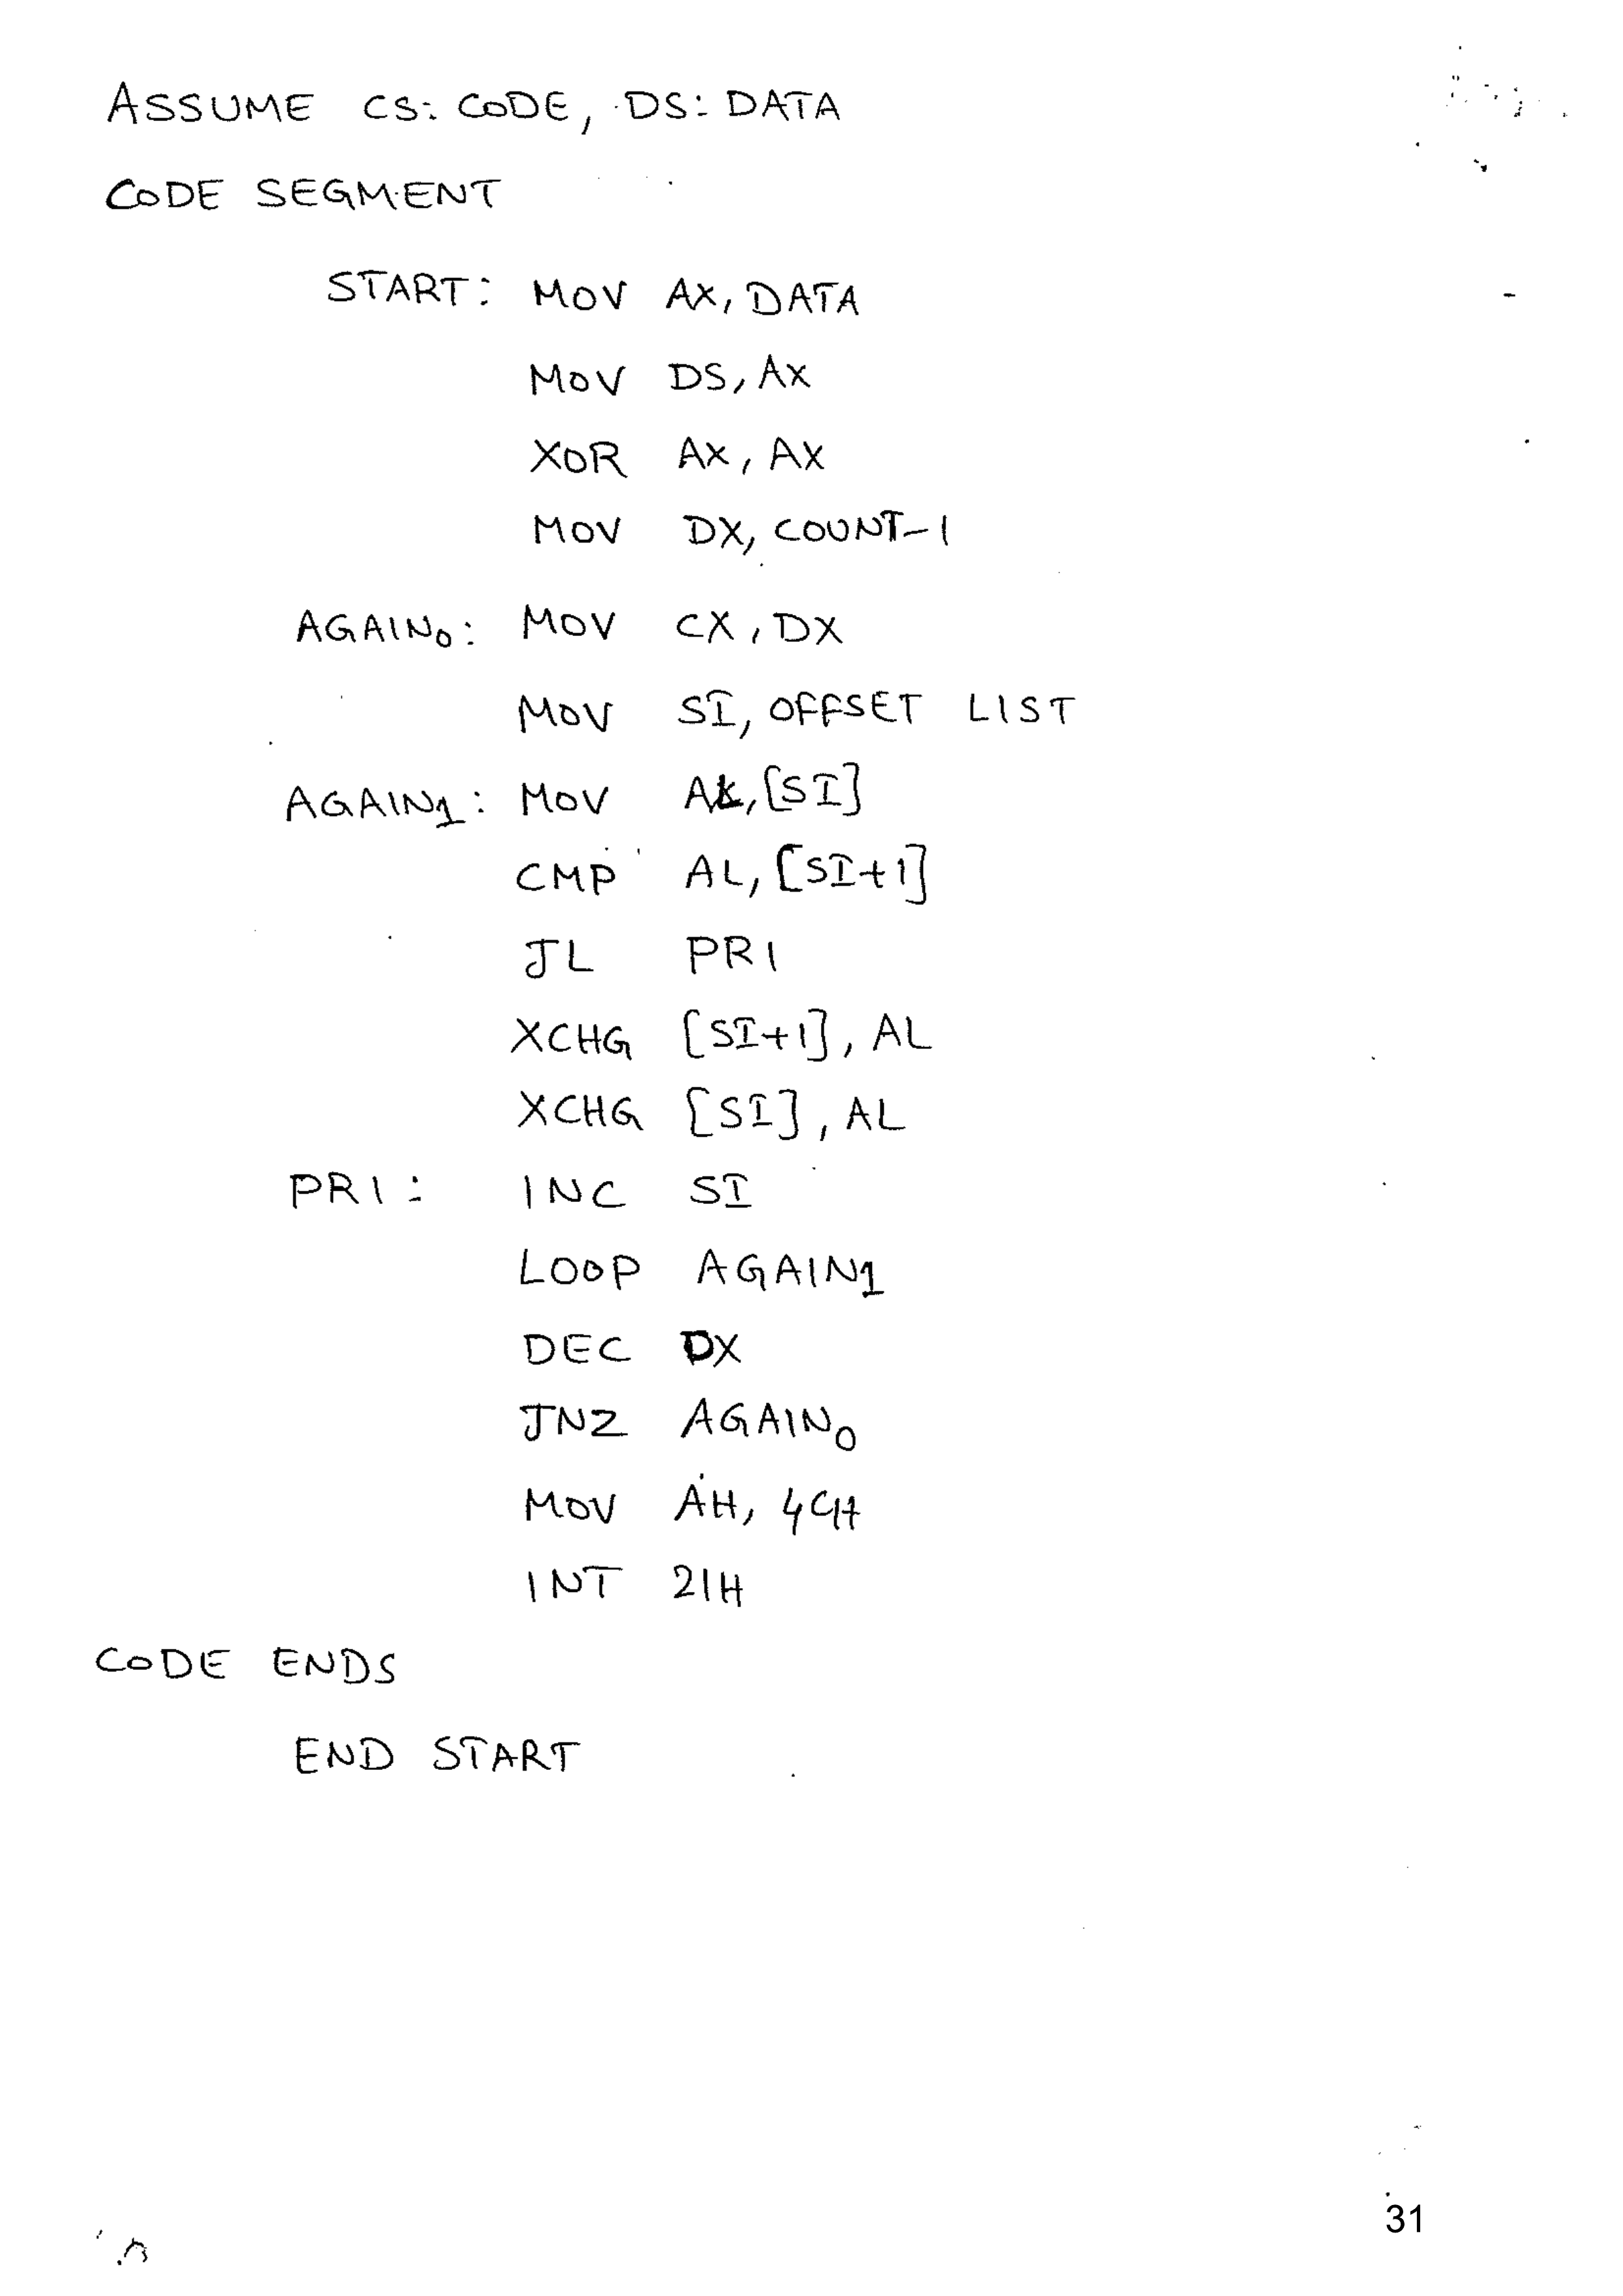 ASSUME CS: CODE, DS: DATA
CODE SEGMENT
START: MOV AX, DATA
MOV DS, AX
XOR AX, AX
MOV DX, COUNT-1
AGAIN0: MOV CX, DX
MOV SI, OFFSET LIST
AGAIN1: MOV AL, [SI]
CMP AL, [SI+1]
JL PR1
XCHG [SI+1], AL
XCHG [SI], AL
PR1: INC SI
LOOP AGAIN1
DEC DX
JNZ AGAIN0
MOV AH, 4CH
INT 21H
CODE ENDS
END START
31